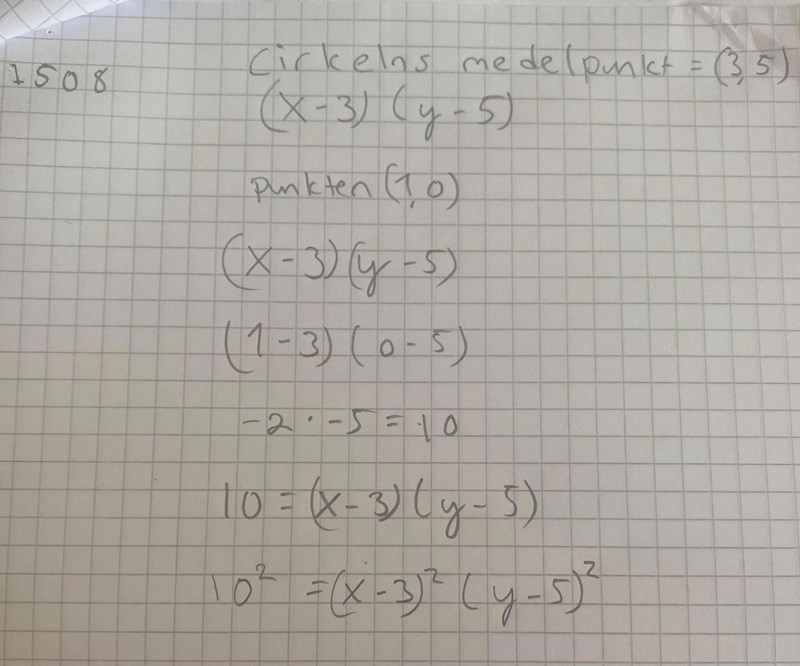 1508
Cirkelns medelpunkt = (3,5)
(x-3) (y-5)
punkten (1,0)
(x-3)(y-5)
(1-3)(0-5)
-2 · -5 = 10
10 = (x-3)(y-5)
10² = (x-3)² (y-5)²